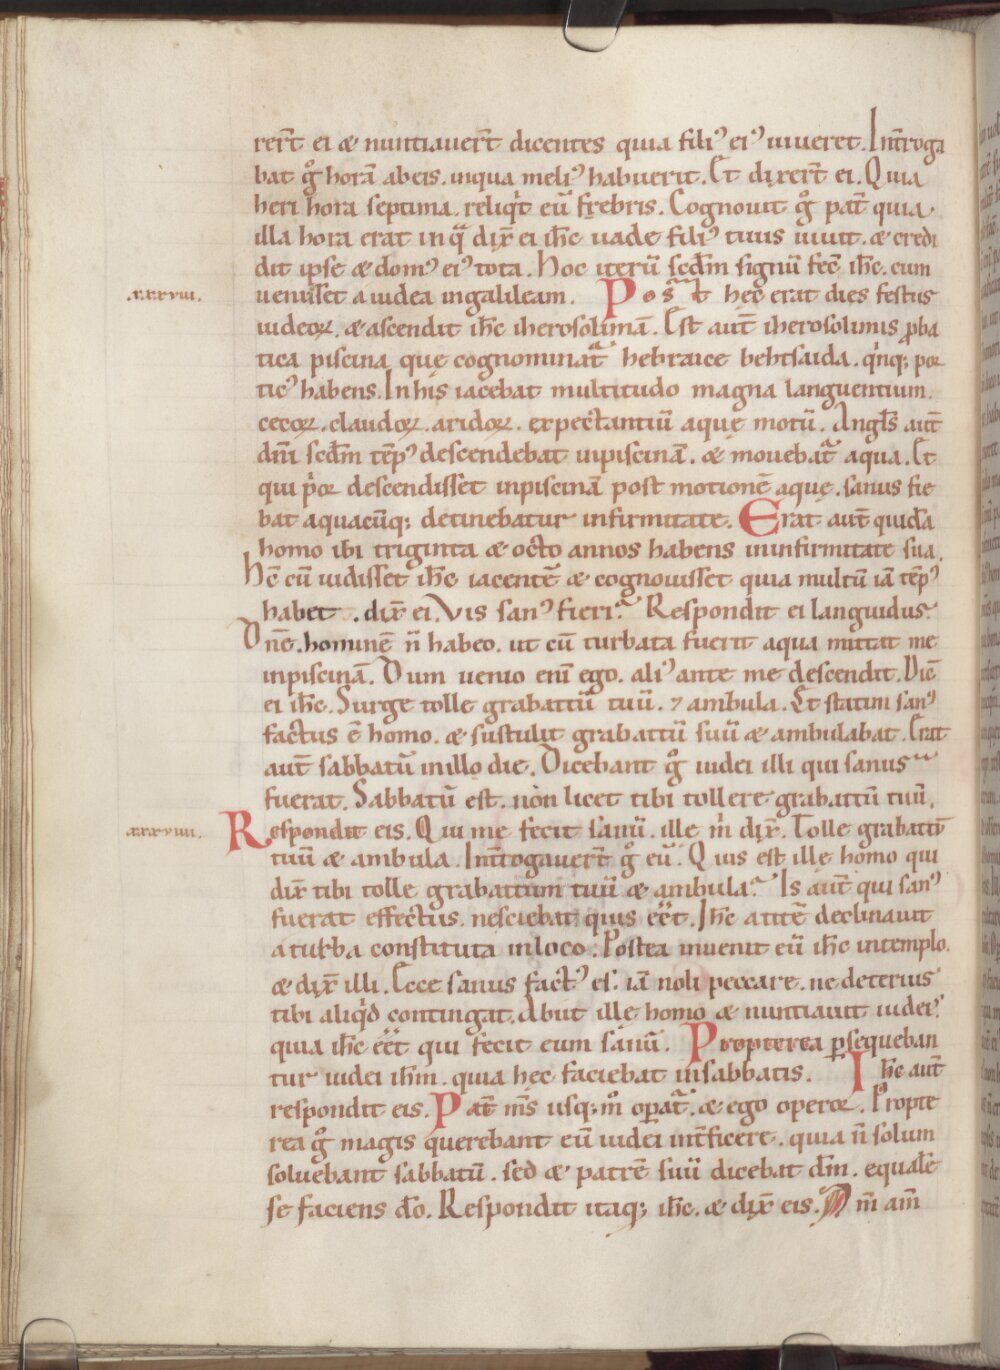 rer̄t ei & nuntiauer̄t dicentes quia filiꝰ eiꝰ uiueret. Int̄roga
bat g̊ horā abeis. inqua meliꝰ habuerit. Et dixer̄t ei. Quia
heri hora septima. reliq̇t eū febris. Cognouit g̊ pat̄ quia
illa hora erat in q̄ dix̄ ei ih̄c uade filiꝰ tuus uiuit. & credi
dit ipse & domꝰ eiꝰ tota. Hoc iterū scd̄m signū fec̄ ih̄c. cum
xxxviii. uenisset a iudea ingalileam. Post hec erat dies festus
iudeoꝝ. & ascendit ih̄c iherosolimā. Est aut̄ iherosolimis ꝓba
tica piscina quę cognominat̄ hebraice behtsaida. q̇nq; por
ticꝰ habens. In his iacebat multitudo magna languentium.
cecoꝝ. claudoꝝ. aridoꝝ. expectantiū aquę motū. Angl̄s aut̄
dn̄i scd̄m tēpꝰ descendebat inpiscinā. & mouebat̄ aqua. Et
qui ṗor descendisset inpiscinā post motionē aquę. sanus fie
bat aquacūq; detinebatur infirmitate. Erat aut̄ quidā
homo ibi triginta & octo annos habens ininfirmitate sua.
Hc̄ cū uidisset ih̄c iacentē & cognouisset quia multū iā tēpꝰ
habet. dix̄ ei. Vis sanꝰ fieri? Respondit ei languidus
Dn̄e. hominē n̄ habeo. ut cū turbata fuerit aqua mittat me
inpiscinā. Dum uenio eni ego. aliꝰ ante me descendit. Dic̄
ei ih̄c. Surge tolle grabattū tuū. ⁊ ambula. Et statim sanꝰ
factus ē homo. & sustulit grabattū suū & ambulabat. Erat
aut̄ sabbatū inillo die. Dicebant g̊ iudei illi qui sanus
fuerat. Sabbatū est. non licet tibi tollere grabattū tuū.
xxxviiii. Respondit eis. Qui me fecit sanū. ille ṁ dix̄. Tolle grabattū
tuū & ambula. Int̄rogauer̄t g̊ eū. Quis est ille homo qui
dix̄ tibi tolle grabattum tuū & ambula? Is aut̄ qui sanꝰ
fuerat effectus. nesciebat quis eēt. Ih̄c aūtē declinauit
a turba constituta inloco. Postea inuenit eū ih̄c intemplo.
& dix̄ illi. Ecce sanus factꝰ es. iā noli peccare. ne deterius
tibi aliq̇d contingat. Abiit ille homo & nuntiauit iudeis
quia ih̄c eēt qui fecit eum sanū. Propterea ꝑsequeban
tur iudei ih̄m. quia hec faciebat insabbatis. Ih̄c aut̄
respondit eis. Pat̄ m̄s usq; m̊ oꝑat̄. & ego operor. Propte
rea g̊ magis querebant eū iudei int̄ficere. quia n̄ solum
soluebant sabbatū. sed & patrē suū dicebat dm̄. equalē
se faciens do̅. Respondit itaq; ih̄c. & dix̄ eis. Am̄ am̄